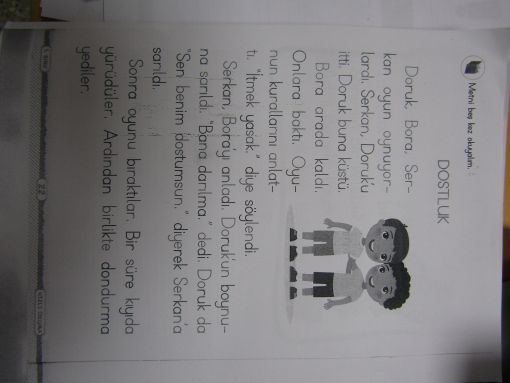 Metni beş kez okuyalım.
DOSTLUK
Doruk, Bora, Ser-
kan oyun oynuyor-
lardı. Serkan, Doruk'u
itti. Doruk buna küstü.
Bora arada kaldı.
Onlara baktı. Oyu-
nun kurallarını anlat-
tı. "İtmek yasak." diye söylendi.
Serkan, Bora'yı anladı. Doruk'un boynu-
na sarıldı. "Bana darılma." dedi. Doruk da
"Sen benim dostumsun." diyerek Serkan'a
sarıldı.
Sonra oyunu bıraktılar. Bir süre kıyıda
yürüdüler. Ardından birlikte dondurma
yediler.
1. SINIF
22